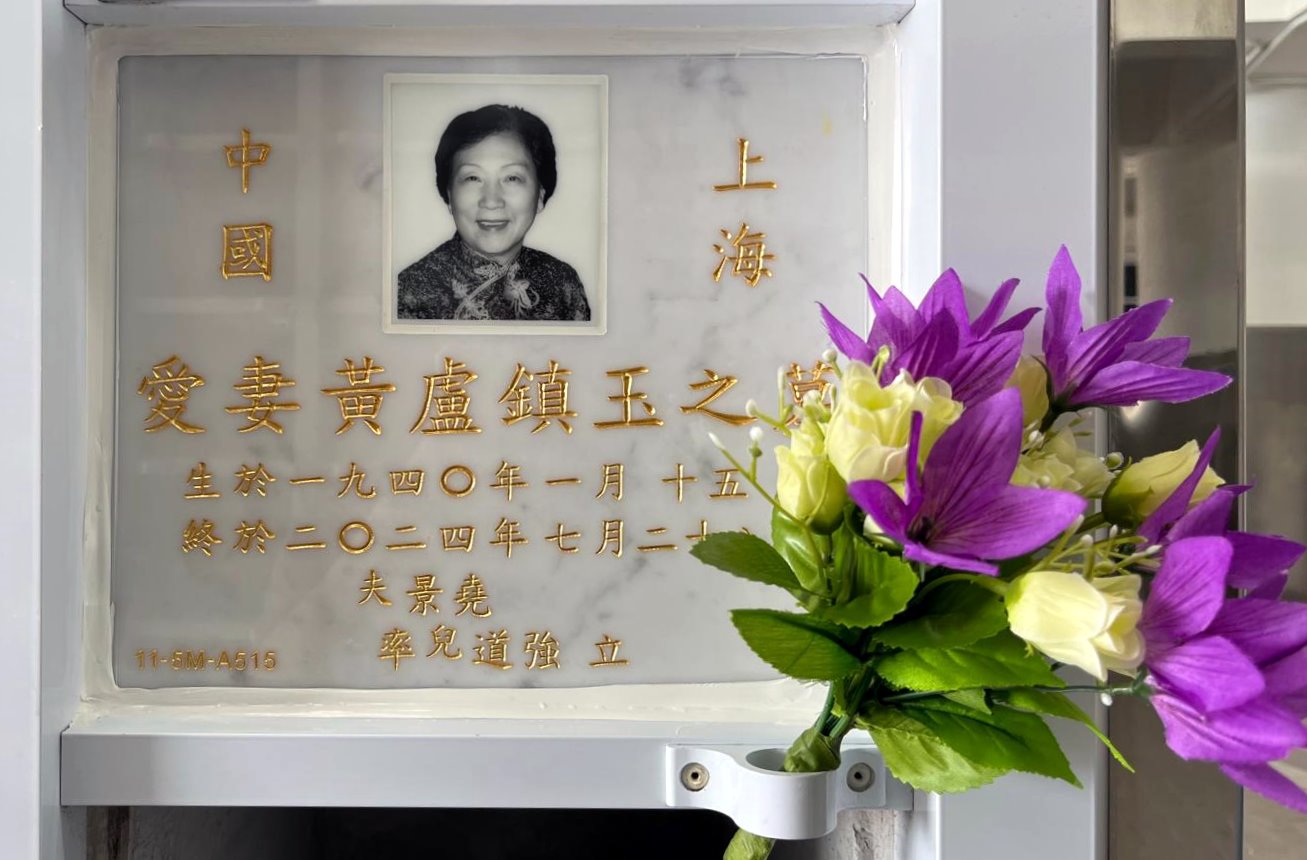 中國
上海
愛妻黃盧鎮玉之墓
生於一九四〇年一月十五
終於二〇二四年七月二十
夫景堯
率兒道強 立
11-5M-A515